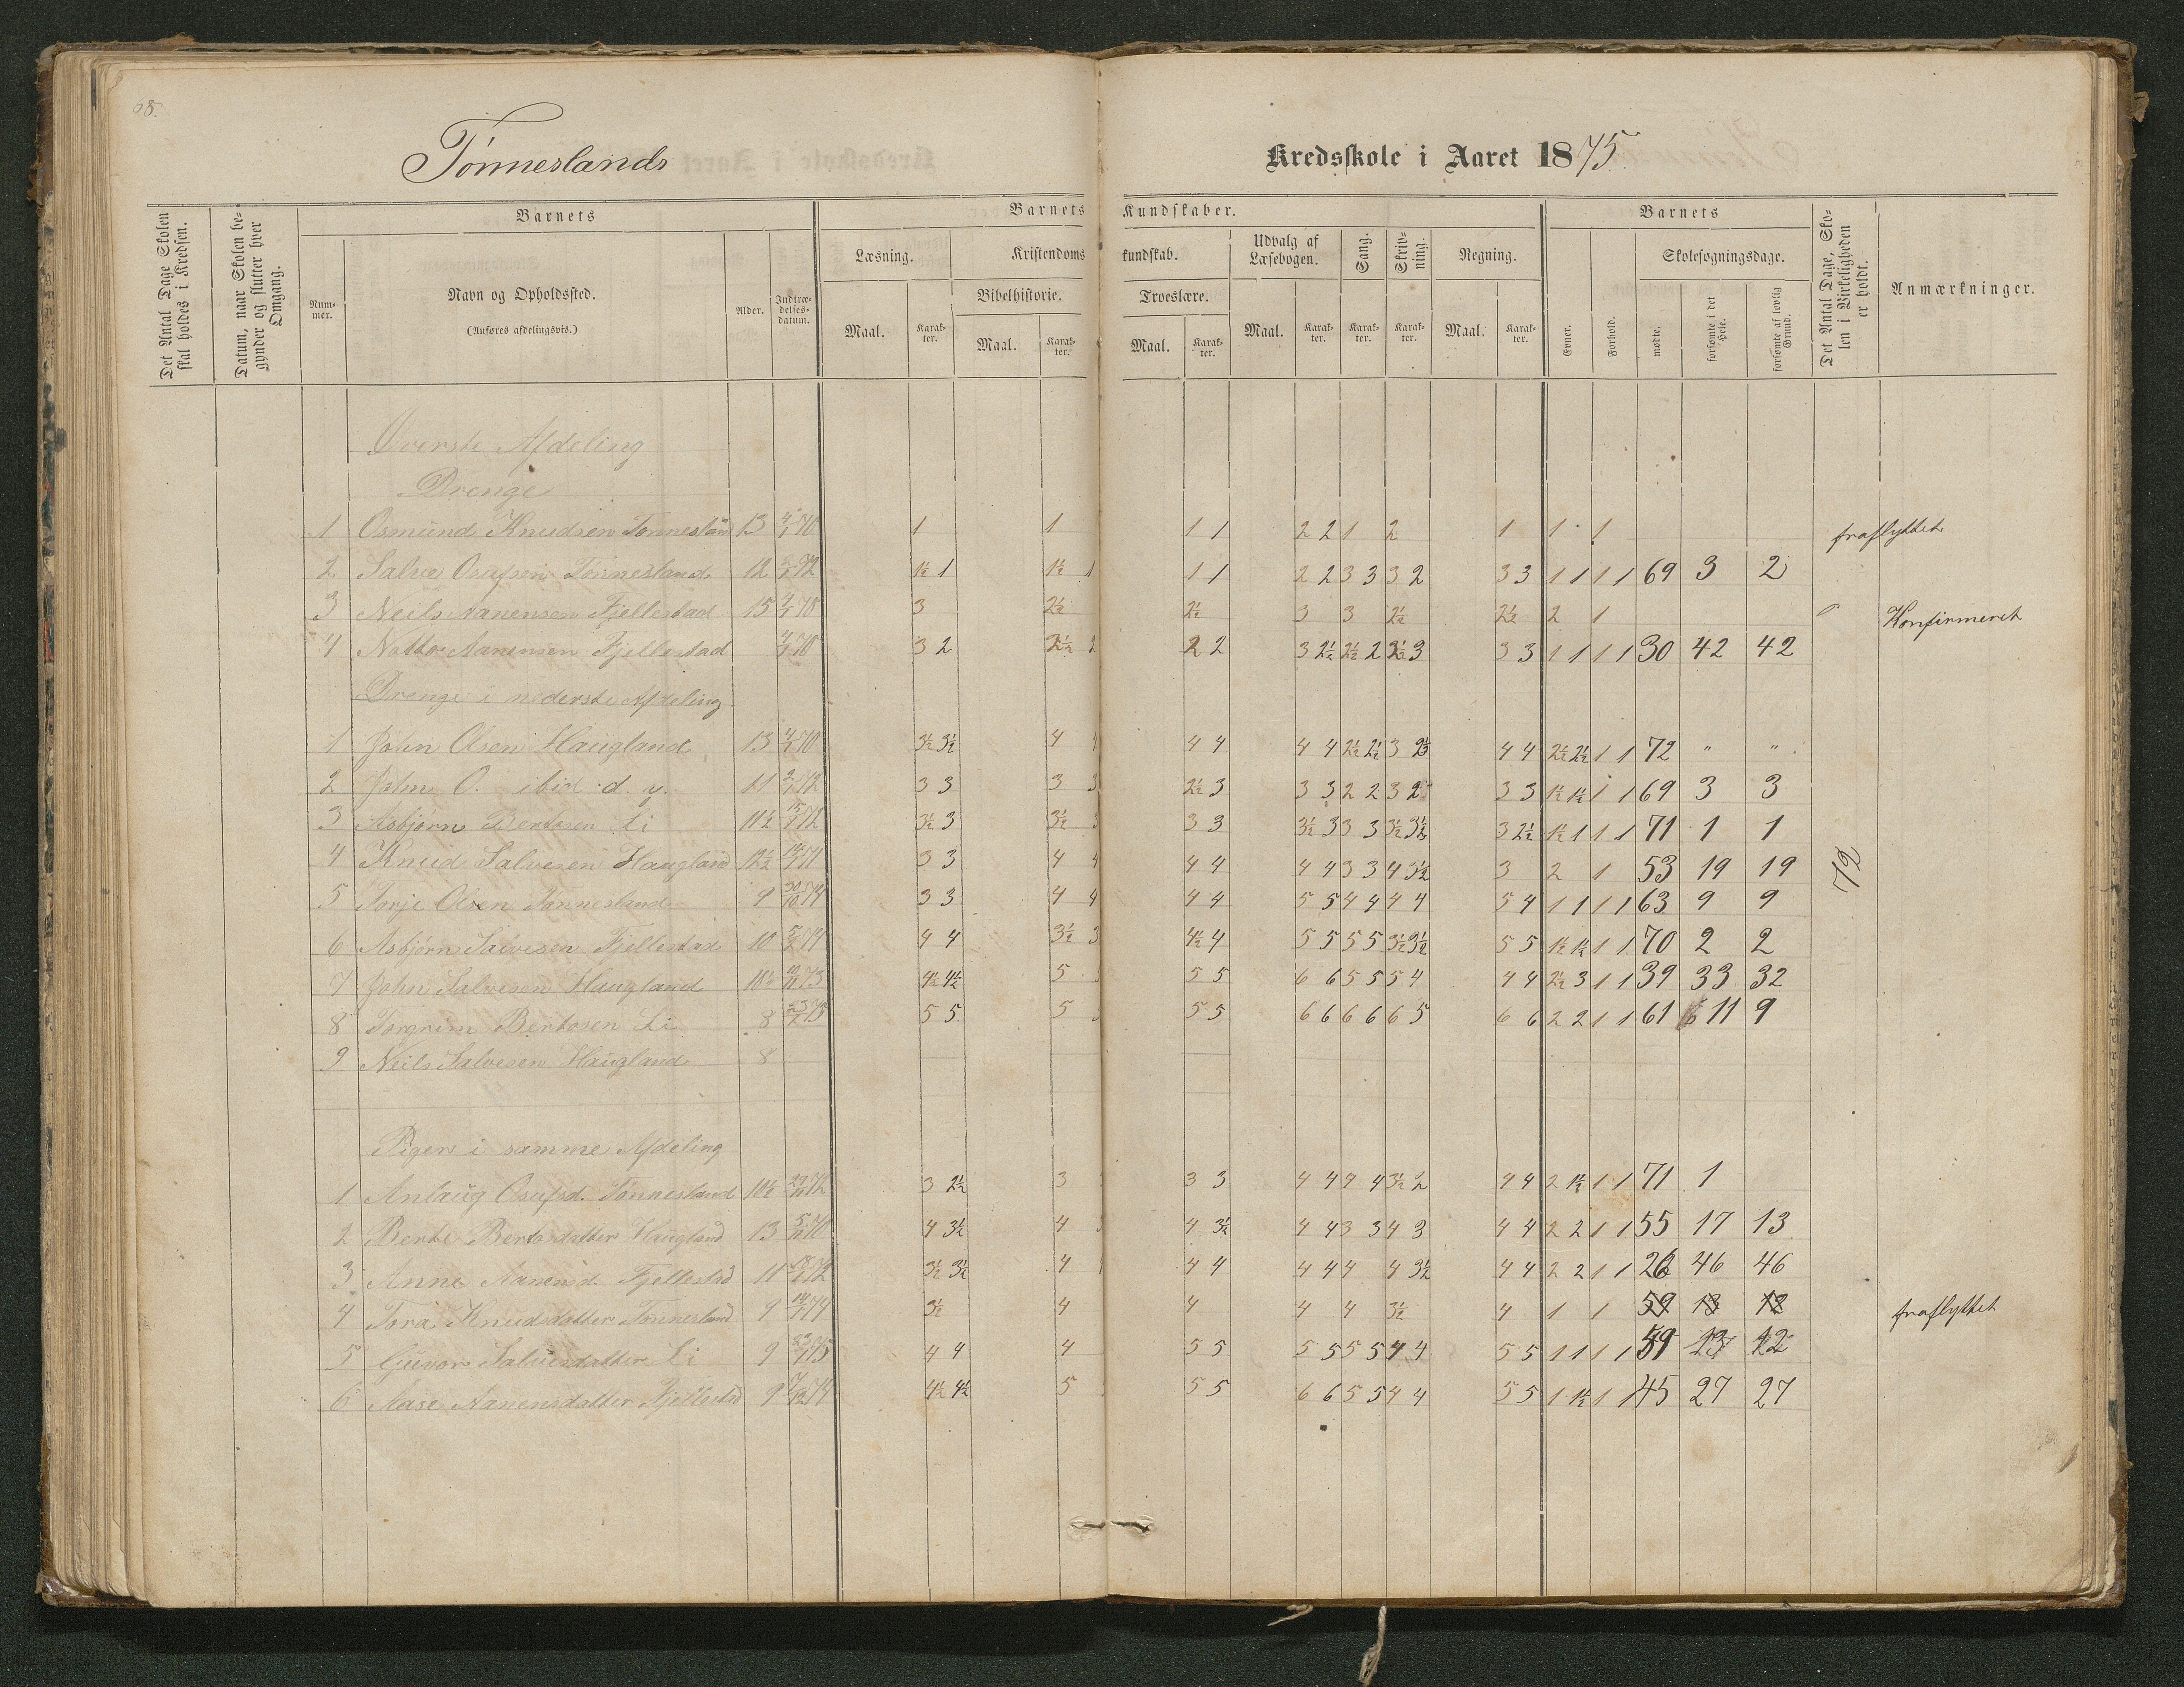 68.
Tønneslands Kredsskole i Aaret 1875.
Det Antal Dage Skolen skal holdes i Kredsen.
Datum, naar Skolen begynder og slutter hver Omgang.
Barnets
Nummer.
Navn og Opholdssted.
(Anføres afdelingsvis.)
Alder.
Indtrædelsesdatum.
Barnets Kundskaber.
Læsning.
Maal. Karakter.
Kristendomskundskab.
Bibelhistorie.
Maal. Karakter.
Troeslære.
Maal. Karakter.
Udvalg af Læsebogen.
Maal. Karakter.
Sang.
Karakter.
Skrivning.
Karakter.
Regning.
Maal. Karakter.
Barnets
Evner.
Forhold.
Skolesøgningsdage.
mødte.
forsømte i det Hele.
forsømte af lovlig Grund.
Det Antal Dage, Skolen i Virkeligheden er holdt.
Anmærkninger.
Øverste Afdeling
Drenge
1 Osmund Knudsen Tønnesland 13 4/1 70 1 1 1 1 2 2 1 2 1 1 1 fraflyttet
2 Salve Osufsen Tønnesland 12 2/1 72 1½ 1 1½ 1 1 1 2 2 3 3 3 2 3 3 1 1 1 1 69 3 2
3 Neils Aanensen Fjellestad 15 4/1 70 3 2½ 2½ 3 3 2½ 2½ 2 1 Konfirmeret
4 Notto Aanensen Fjellestad 4/1 70 3 2 3½ 2 2 2 3 2½ 2½ 2 3½ 3 3 3 1 1 1 1 30 42 42
Drenge i nederste Afdeling
1 John Olsen Haugland 13 4/1 70 3½ 3½ 4 4 4 4 4 4 2½ 2½ 3 2½ 4 4 2½ 2½ 1 1 72 " "
2 John O. ibid d. y. 11 2/1 72 3 3 3 3 2½ 3 3 3 2 2 3 2 3 3 1½ 1½ 1 1 69 3 3
3 Asbjørn Bertosen Li 11½ 15/1 72 3½ 3 3½ 3 3 3 3½ 3 3 3 3½ 3½ 3 2½ 1½ 1 1 1 71 1 1
4 Knud Salvesen Haugland 12½ 3 3 4 4 4 4 4 4 3 3 4 3½ 3 2 1 53 19 19
72
5 Torje Olsen Tønnesland 9 30/10 74 3 3 4 4 4 4 5 5 4 4 4 4 5 4 1 1 1 1 63 9 9
6 Asbjørn Salvesen Fjellestad 10 5/2 74 4 4 3½ 3 4½ 4 5 5 5 5 3½ 3½ 5 5 1½ 1½ 1 1 70 2 2
7 John Salvesen Haugland 10½ 4½ 4½ 5 5 5 6 6 5 5 5 4 4 4 2½ 3 1 1 39 33 32
8 Torgrim Bertosen Li 8 5 5 5 5 5 6 6 6 6 6 5 6 6 2 2 1 1 61 11 9
9 Neils Salvesen Haugland 8
Piger i samme Afdeling
1 Anlaug Osufsd. Tønnesland 10½ 3 2½ 3 3 3 4 4 4 4 3½ 2 4 4 2 1½ 1 1 71 1
2 Berte Bertosdatter Haugland 13 4 3½ 4 4 3½ 4 4 3 3 4 3 4 4 2 2 1 1 55 17 13
3 Anne Aanensd. Fjellestad 11 3½ 3½ 4 4 4 4 4 4 4 3½ 4 4 2 2 1 1 26 46 46
4 Tora Knudsdatter Tønnesland 9 14/1 74 3½ 4 4 4 4 3½ 4 1 1 59 13 12 fraflyttet
5 Gunvor Salvesdatter Li 9 4 4 4 5 5 5 5 5 5 4 4 5 5 1 1 1 1 59 13 12
6 Aase Aanensdatter Fjellestad 9 4½ 4½ 5 5 5 6 6 5 5 4 4 5 5 1 1½ 1 1 45 27 27